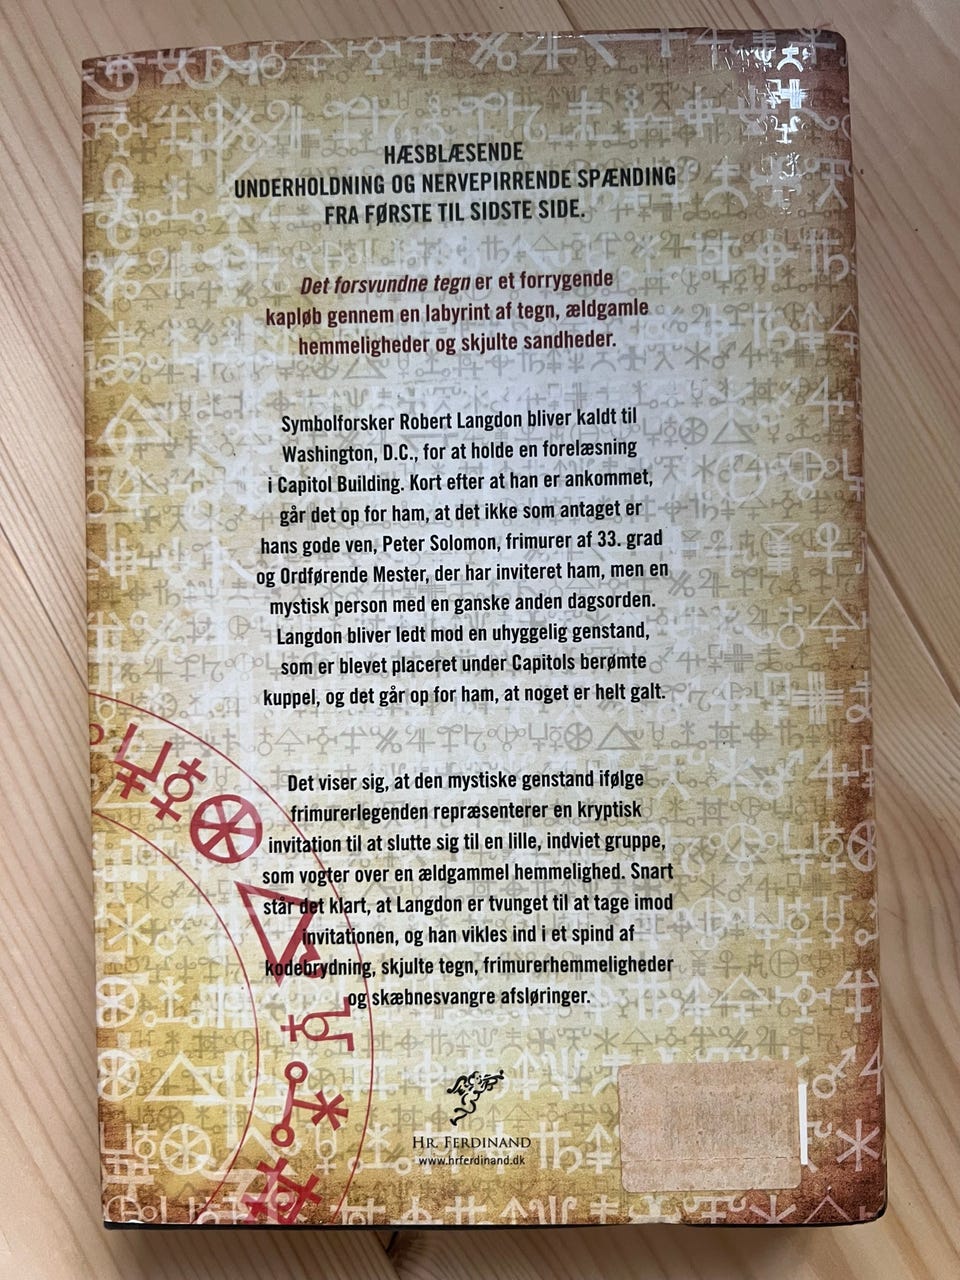 HÆSBLÆSENDE
UNDERHOLDNING OG NERVEPIRRENDE SPÆNDING
FRA FØRSTE TIL SIDSTE SIDE.
Det forsvundne tegn er et forrygende
kapløb gennem en labyrint af tegn, ældgamle
hemmeligheder og skjulte sandheder.
Symbolforsker Robert Langdon bliver kaldt til
Washington, D.C., for at holde en forelæsning
i Capitol Building. Kort efter at han er ankommet,
går det op for ham, at det ikke som antaget er
hans gode ven, Peter Solomon, frimurer af 33. grad
og Ordførende Mester, der har inviteret ham, men en
mystisk person med en ganske anden dagsorden.
Langdon bliver ledt mod en uhyggelig genstand,
som er blevet placeret under Capitols berømte
kuppel, og det går op for ham, at noget er helt galt.
Det viser sig, at den mystiske genstand ifølge
frimurerlegenden repræsenterer en kryptisk
invitation til at slutte sig til en lille, indviet gruppe,
som vogter over en ældgammel hemmelighed. Snart
står det klart, at Langdon er tvunget til at tage imod
invitationen, og han vikles ind i et spind af
kodebrydning, skjulte tegn, frimurerhemmeligheder
og skæbnesvangre afsløringer.
HR. FERDINAND
www.hrferdinand.dk